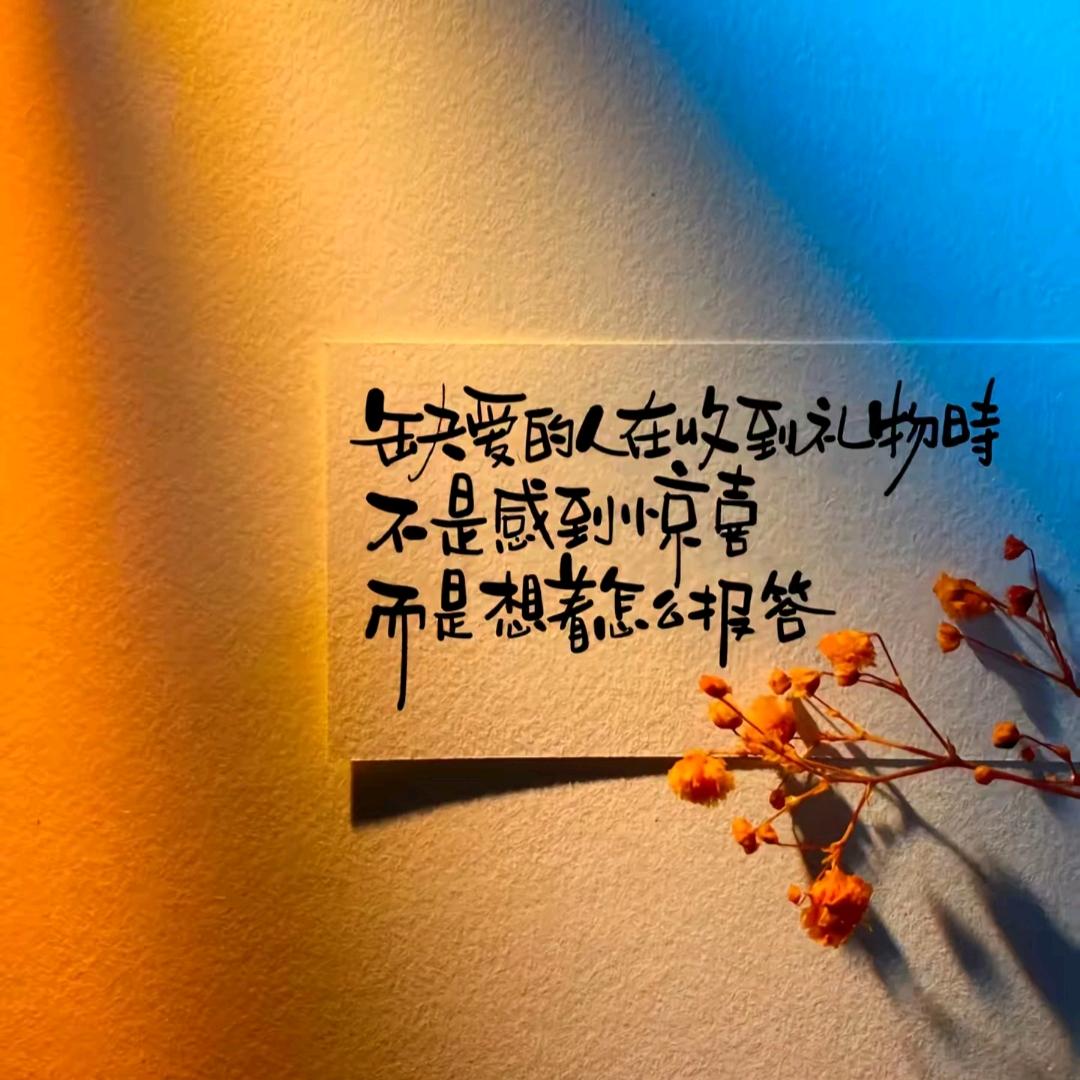 缺爱的人在收到礼物時
不是感到惊喜
而是想着怎么报答